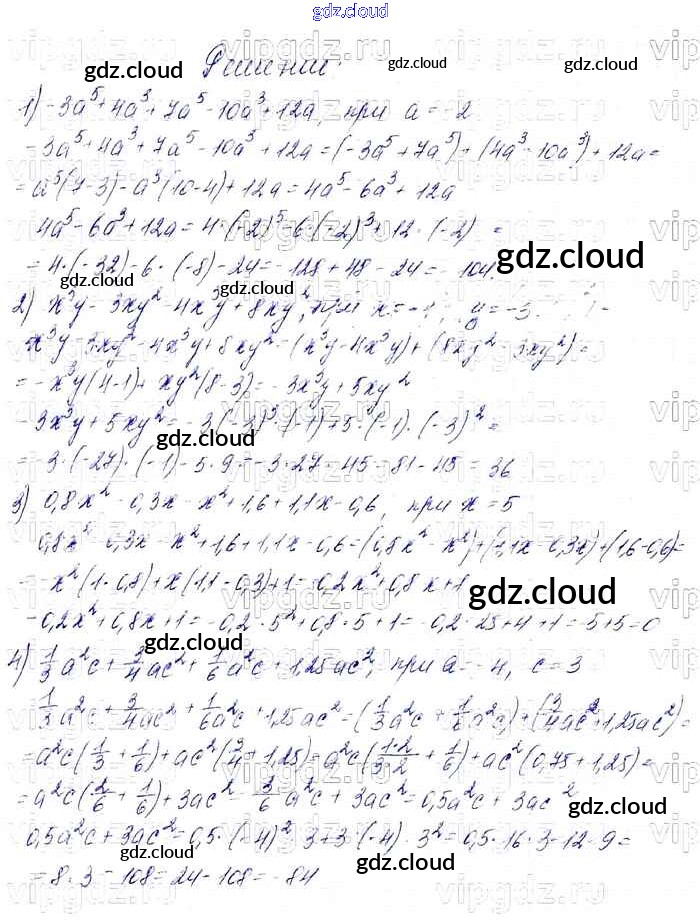 gdz.cloud
Решение:
1) -3a⁵+4a³+7a⁵-10a³+12a, при a=-2
-3a⁵+4a³+7a⁵-10a³+12a=(-3a⁵+7a⁵)+(4a³-10a³)+12a=
=a⁵(7-3)-a³(10-4)+12a=4a⁵-6a³+12a
4a⁵-6a³+12a=4·(-2)⁵-6·(-2)³+12·(-2)=
=4·(-32)-6·(-8)-24=-128+48-24=-104.
2) x³y-3xy²-4x³y+8xy², при x=-1, y=-3.
x³y-3xy²-4x³y+8xy²=(x³y-4x³y)+(8xy²-3xy²)=
=-x³y(4-1)+xy²(8-3)=-3x³y+5xy²
-3x³y+5xy²=-3·(-3)³·(-1)+5·(-1)·(-3)²=
=-3·(-27)·(-1)-5·9=-3·27-45=81-45=36
3) 0,8x²-0,3x-x²+1,6+1,1x-0,6, при x=5
0,8x²-0,3x-x²+1,6+1,1x-0,6=(0,8x²-x²)+(1,1x-0,3x)+(1,6-0,6)=
=-x²(1-0,8)+x(1,1-0,3)+1=-0,2x²+0,8x+1
-0,2x²+0,8x+1=-0,2·5²+0,8·5+1=-0,2·25+4+1=-5+5=0
4) 1/3a²c+3/4ac²+1/6a²c+1,25ac², при a=-4, c=3
1/3a²c+3/4ac²+1/6a²c+1,25ac²=(1/3a²c+1/6a²c)+(3/4ac²+1,25ac²)=
=a²c(1/3+1/6)+ac²(3/4+1,25)=a²c(1·2/3·2+1/6)+ac²(0,75+1,25)=
=a²c(2/6+1/6)+3ac²=3/6a²c+3ac²=0,5a²c+3ac²
0,5a²c+3ac²=0,5·(-4)²·3+3·(-4)·3²=0,5·16·3-12·9=
=8·3-108=24-108=-84